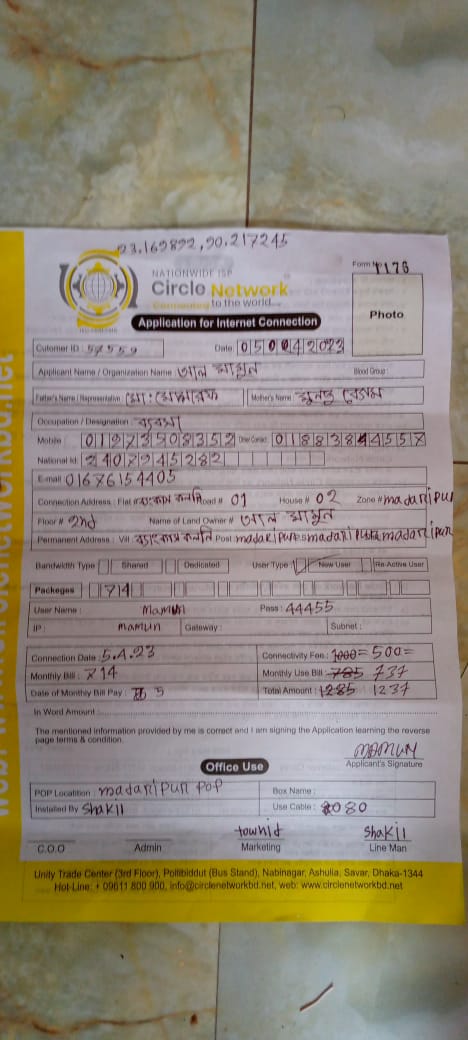 23.169892,90.217245
NATIONWIDE ISP
Form No 1176
Circle Network
Connecting to the world...
Photo
Application for Internet Connection
Cutomer ID : 57559 Date: 05 04 2023
Applicant Name / Organization Name আল মামুন Blood Group :
Father's Name / Representative মো: Mother's Name বেগম
Occupation / Designation : ব্যবসা
Mobile : 01973908352 Other Contact 01883844557
National Id: 2407245282
E-mail 01676154405
Connection Address : Flat কলনি Road # 01 House # 02 Zone # madaripur
Floor # 2nd Name of Land Owner # আল মামুন
Permanent Address : Vill কলনি Post madaripur madaripur madaripur
Bandwidth Type : Shared Dedicated User Type : New User Re-Active User
Packeges 714
User Name : mamun Pass : 44455
IP : mamun Gateway : Subnet :
Connection Date : 5.4.23 Connectivity Fee : 1000= 500=
Monthly Bill : 714 Monthly Use Bill : 785 737
Date of Monthly Bill Pay : 5 Total Amount : 1285 1237
In Word Amount :
The mentioned information provided by me is correct and I am signing the Application learning the reverse
page terms & condition.
mamun
Office Use Applicant's Signature
POP Locatition : madaripur pop Box Name :
Installed By Shakil Use Cable : 080
townid Shakil
C.O.O Admin Marketing Line Man
Unity Trade Center (3rd Floor), Pollibiddut (Bus Stand), Nabinagar, Ashulia, Savar, Dhaka-1344
Hot-Line: + 09611 800 900, info@circlenetworkbd.net, web: www.circlenetworkbd.net